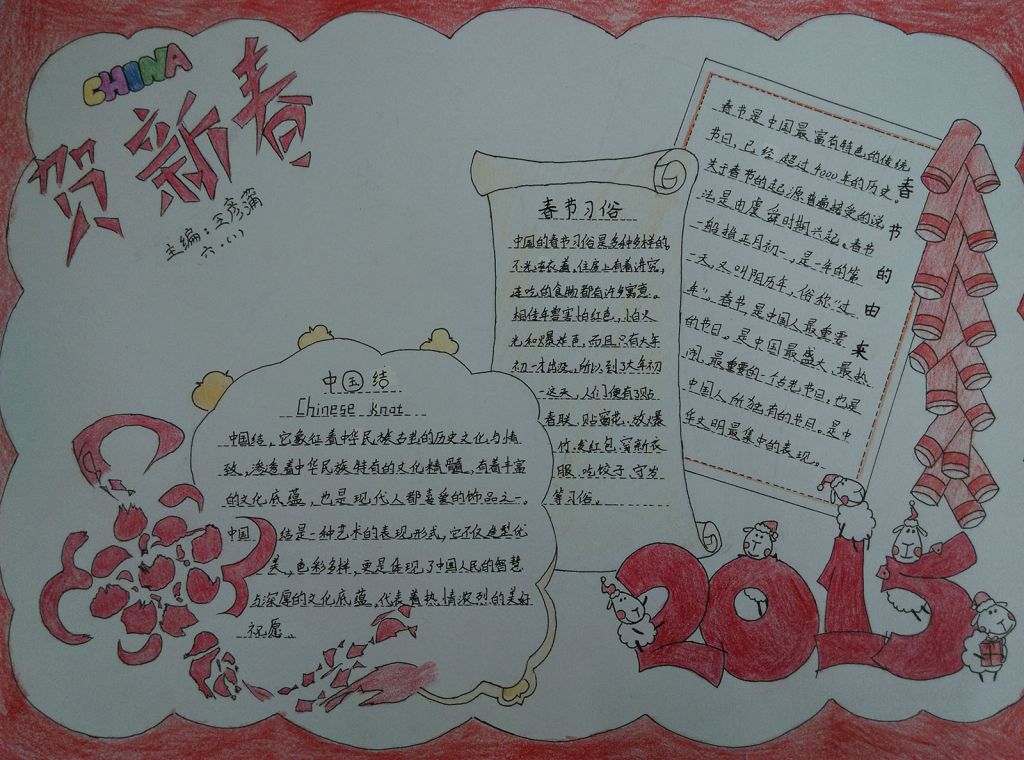 CHINA
贺新春
主编：王彦蒲
六.(1)
春节习俗
中国的春节习俗是多种多样的，
不光在衣着、住店上有着讲究，
连吃的食物都有许多寓意。
相传年兽害怕红色、怕火
光和爆炸声，而且只有大年
初一才出没，所以到了大年初
一这天，人们便有了贴
春联、贴窗花、放爆
竹、发红包、穿新衣
服、吃饺子、守岁
等习俗。
春节的由来
春节是中国最富有特色的传统
节日，已经超过4000年的历史。
关于春节的起源普遍接受的说
法是由虞舜时期兴起。春节
一般指正月初一，是一年的第
一天，又叫阴历年，俗称“过
年”。春节是中国人最重要
的节日。是中国最盛大、最热
闹、最重要的一个传统节日。也是
中国人所独有的节日。是中
华文明最集中的表现。
中国结
Chinese knot
中国结，它象征着中华民族古老的历史文化与情
致，渗透着中华民族特有的文化精髓，有着丰富
的文化底蕴，也是现代人都喜爱的饰品之一。
中国结是一种艺术的表现形式，它不仅造型优
美、色彩多样，更是体现了中国人民的智慧
与深厚的文化底蕴，代表着热情浓烈的美好
祝愿。
2015